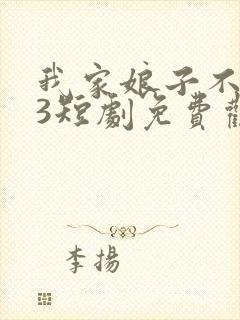 我家娘子不
3短劇免費
李揚